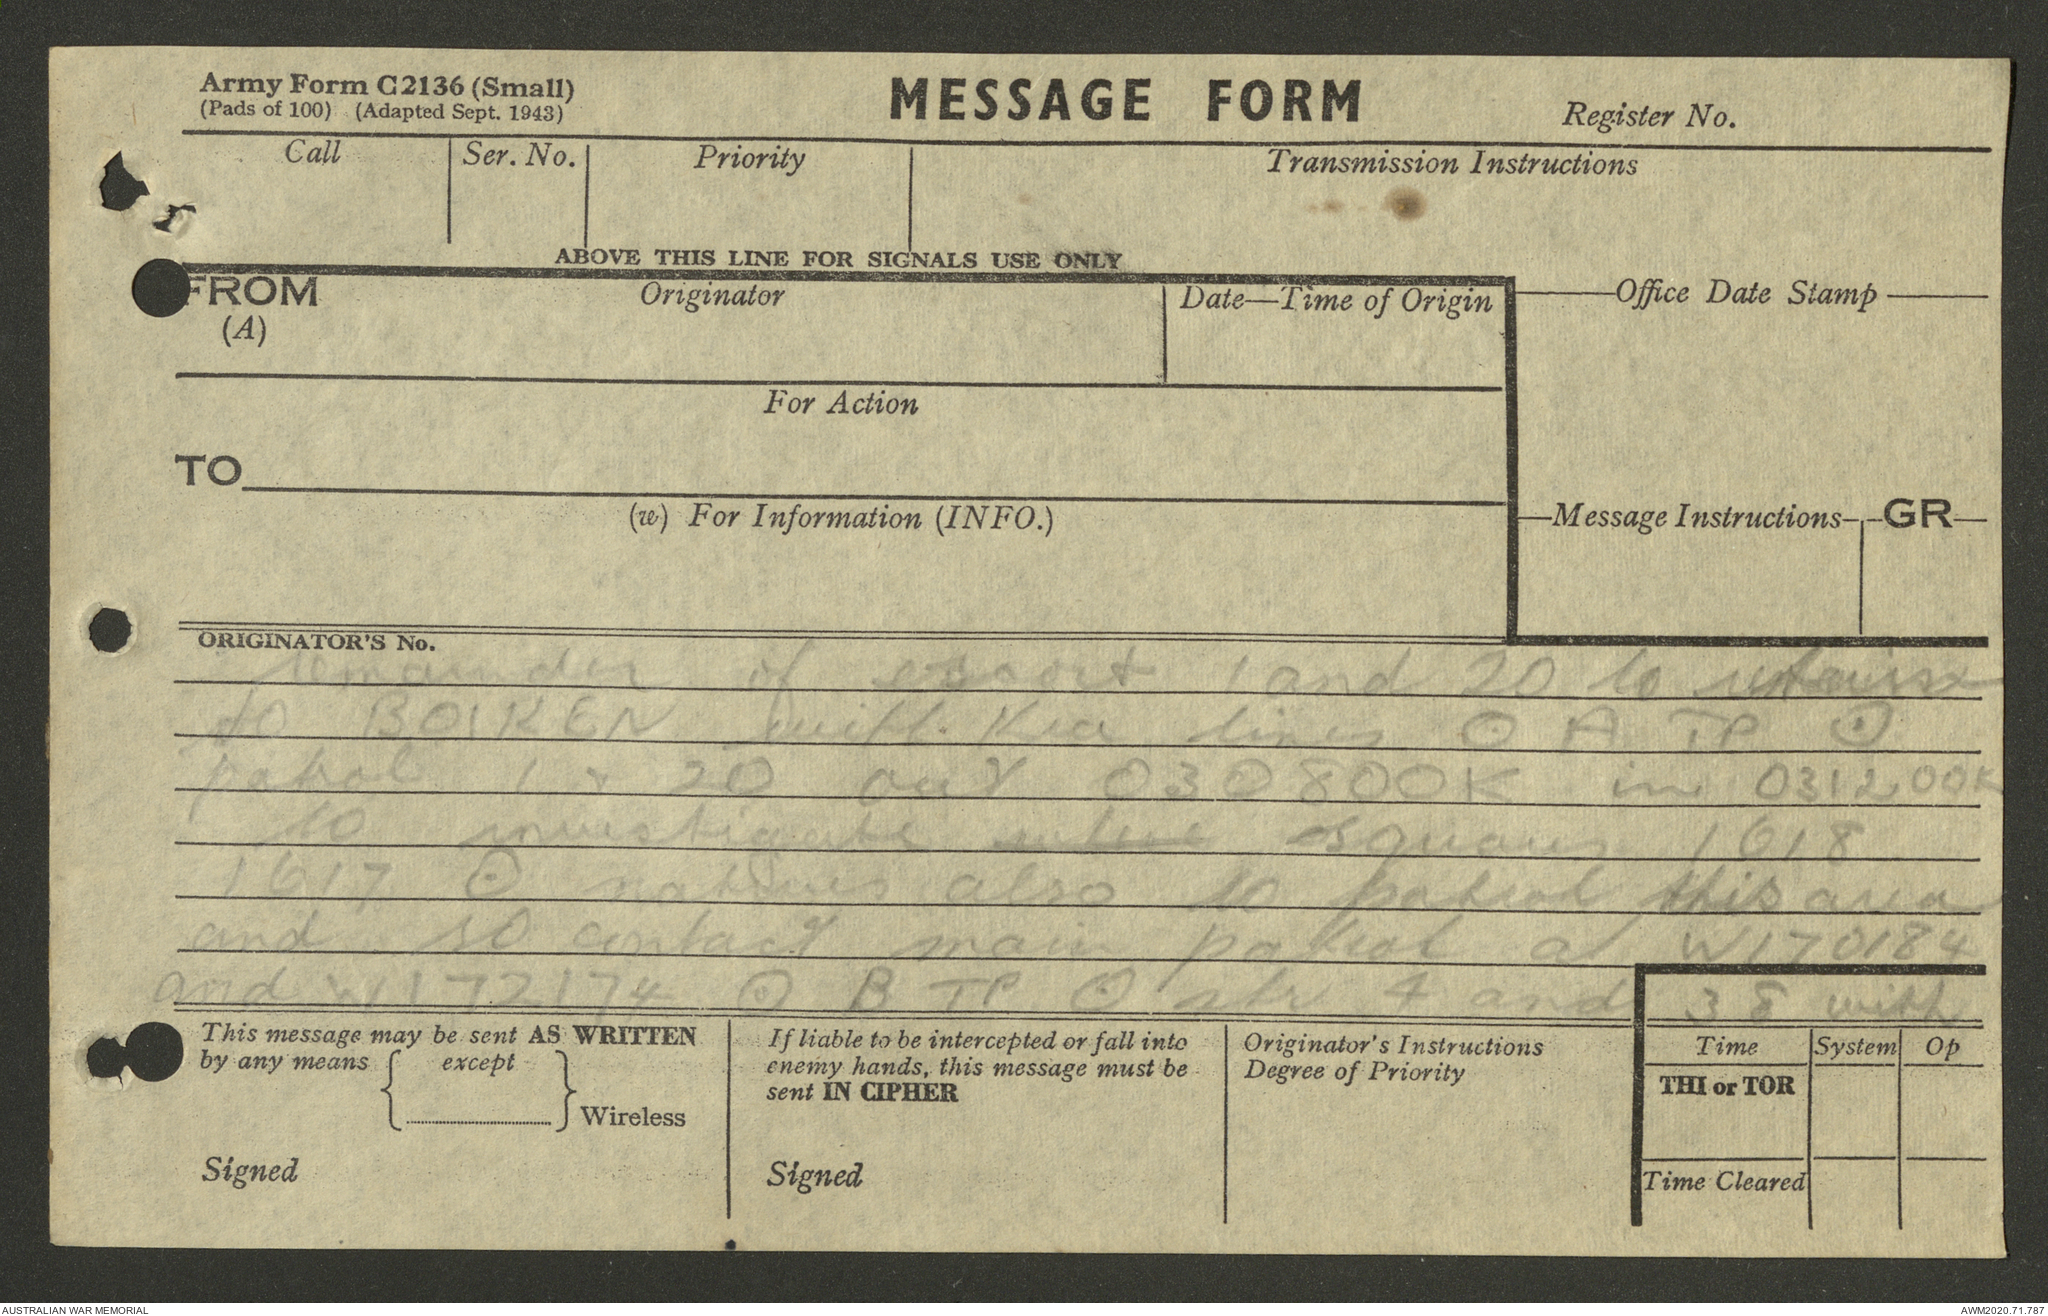 Army Form C2136 (Small)
(Pads of 100) (Adapted Sept. 1943)
MESSAGE FORM
Register No.
Call
Ser. No.
Priority
Transmission Instructions
ABOVE THIS LINE FOR SIGNALS USE ONLY
FROM
(A)
Originator
Date—Time of Origin
Office Date Stamp
For Action
TO
(w) For Information (INFO.)
Message Instructions
GR
ORIGINATOR'S No.
remainder of escort 1 and 20 to
to BOIKEN with Kia lines ⊙ A TP ⊙
patrol 1 & 20 out 030800K in 031200K
to investigate squares 1618
1617 ⊙ natives also to patrol this area
and so contact main patrol at W170184
and W172174 ⊙ B TP ⊙ str 4 and 38 with
This message may be sent AS WRITTEN
by any means except
Wireless
Signed
If liable to be intercepted or fall into
enemy hands, this message must be
sent IN CIPHER
Signed
Originator's Instructions
Degree of Priority
Time
System
Op
THI or TOR
Time Cleared
AUSTRALIAN WAR MEMORIAL
AWM2020.71.787